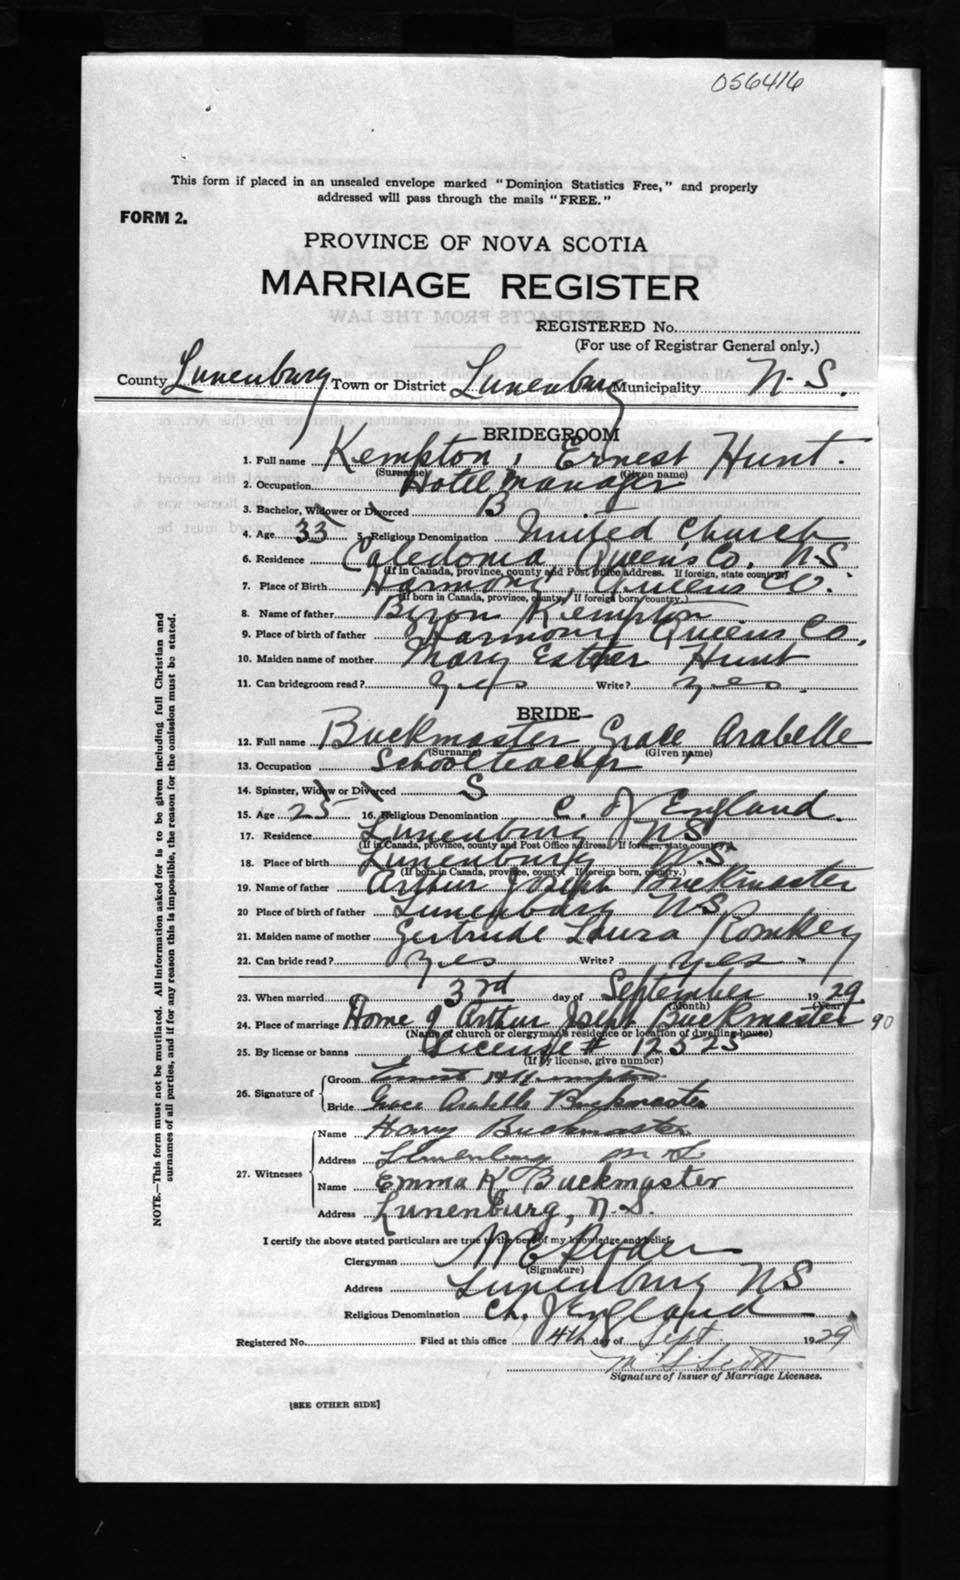 056416
This form if placed in an unsealed envelope marked "Dominion Statistics Free," and properly
addressed will pass through the mails "FREE."
FORM 2.
PROVINCE OF NOVA SCOTIA
MARRIAGE REGISTER
REGISTERED No.
(For use of Registrar General only.)
County Lunenburg Town or District Lunenburg Municipality N.S.
BRIDEGROOM
1. Full name Kempton, Ernest Hunt.
(Surname) (Given name)
2. Occupation Hotel Manager
3. Bachelor, Widower or Divorced B
4. Age 33 5. Religious Denomination United Church
6. Residence Caledonia, Queens Co. N.S.
(If in Canada, province, county and Post Office address. If foreign, state country)
7. Place of Birth Harmony, Queens Co.
(If born in Canada, province, county. If foreign born, country.)
8. Name of father Byron Kempton
9. Place of birth of father Harmony Queens Co.
10. Maiden name of mother Mary Esther Hunt
11. Can bridegroom read? yes Write? yes.
BRIDE
12. Full name Buckmaster Grace Arabelle
(Surname) (Given name)
13. Occupation Schoolteacher
14. Spinster, Widow or Divorced S
15. Age 25 16. Religious Denomination C. of England.
17. Residence Lunenburg NS
(If in Canada, province, county and Post Office address. If foreign, state country)
18. Place of birth Lunenburg N.S.
(If born in Canada, province, county. If foreign born, country.)
19. Name of father Arthur Joseph Buckmaster
20 Place of birth of father Lunenburg NS
21. Maiden name of mother Gertrude Laura Romkey
22. Can bride read? yes Write? yes.
23. When married 3rd day of September 1929
(Month) (Year)
24. Place of marriage Home of Arthur Joseph Buckmaster 90
(Name of church or clergyman's residence or location of dwelling-house)
25. By license or banns License # 12325
(If by license, give number)
26. Signature of Groom Ernest H Kempton
Bride Grace Arabelle Buckmaster
27. Witnesses Name Harry Buckmaster
Address Lunenburg N S
Name Emma K Buckmaster
Address Lunenburg, N.S.
I certify the above stated particulars are true to the best of my knowledge and belief.
Clergyman W E Ryder
(Signature)
Address Lunenburg NS
Religious Denomination Ch. of England
Registered No. Filed at this office 4th day of Sept. 1929
Signature of Issuer of Marriage Licenses.
[SEE OTHER SIDE]
NOTE.—This form must not be mutilated. All information asked for is to be given including full Christian and
surnames of all parties, and if for any reason this is impossible, the reason for the omission must be stated.